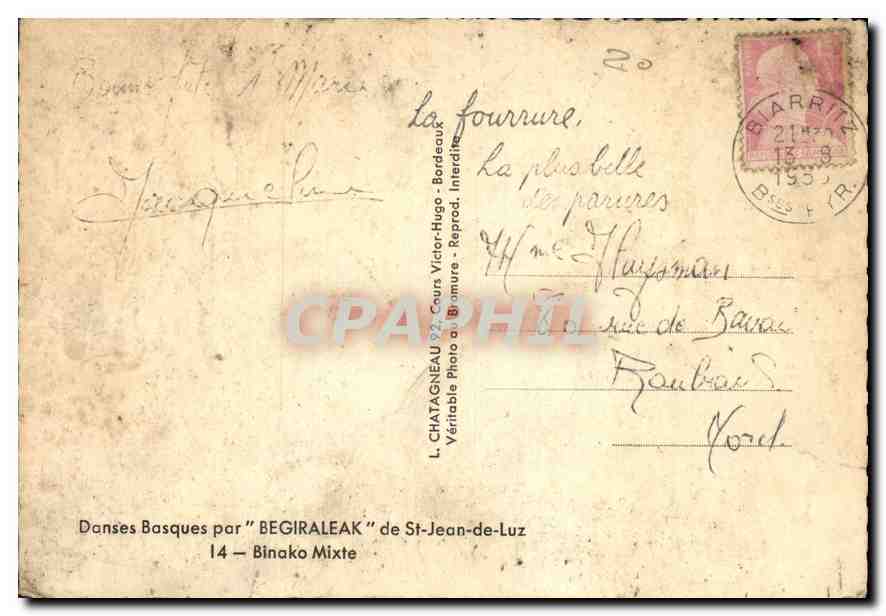 Bonne fête Marie
Jacqueline
La fourrure,
La plus belle
des parures
Mme Huysman
80 rue de Bavai
Roubaix
Nord
BIARRITZ
21H30
13-8
Bses PYR.
L. CHATAGNEAU 92, Cours Victor-Hugo - Bordeaux
Véritable Photo au Bromure - Reprod. Interdite
CPAPHIL
Danses Basques par " BEGIRALEAK " de St-Jean-de-Luz
14 — Binako Mixte